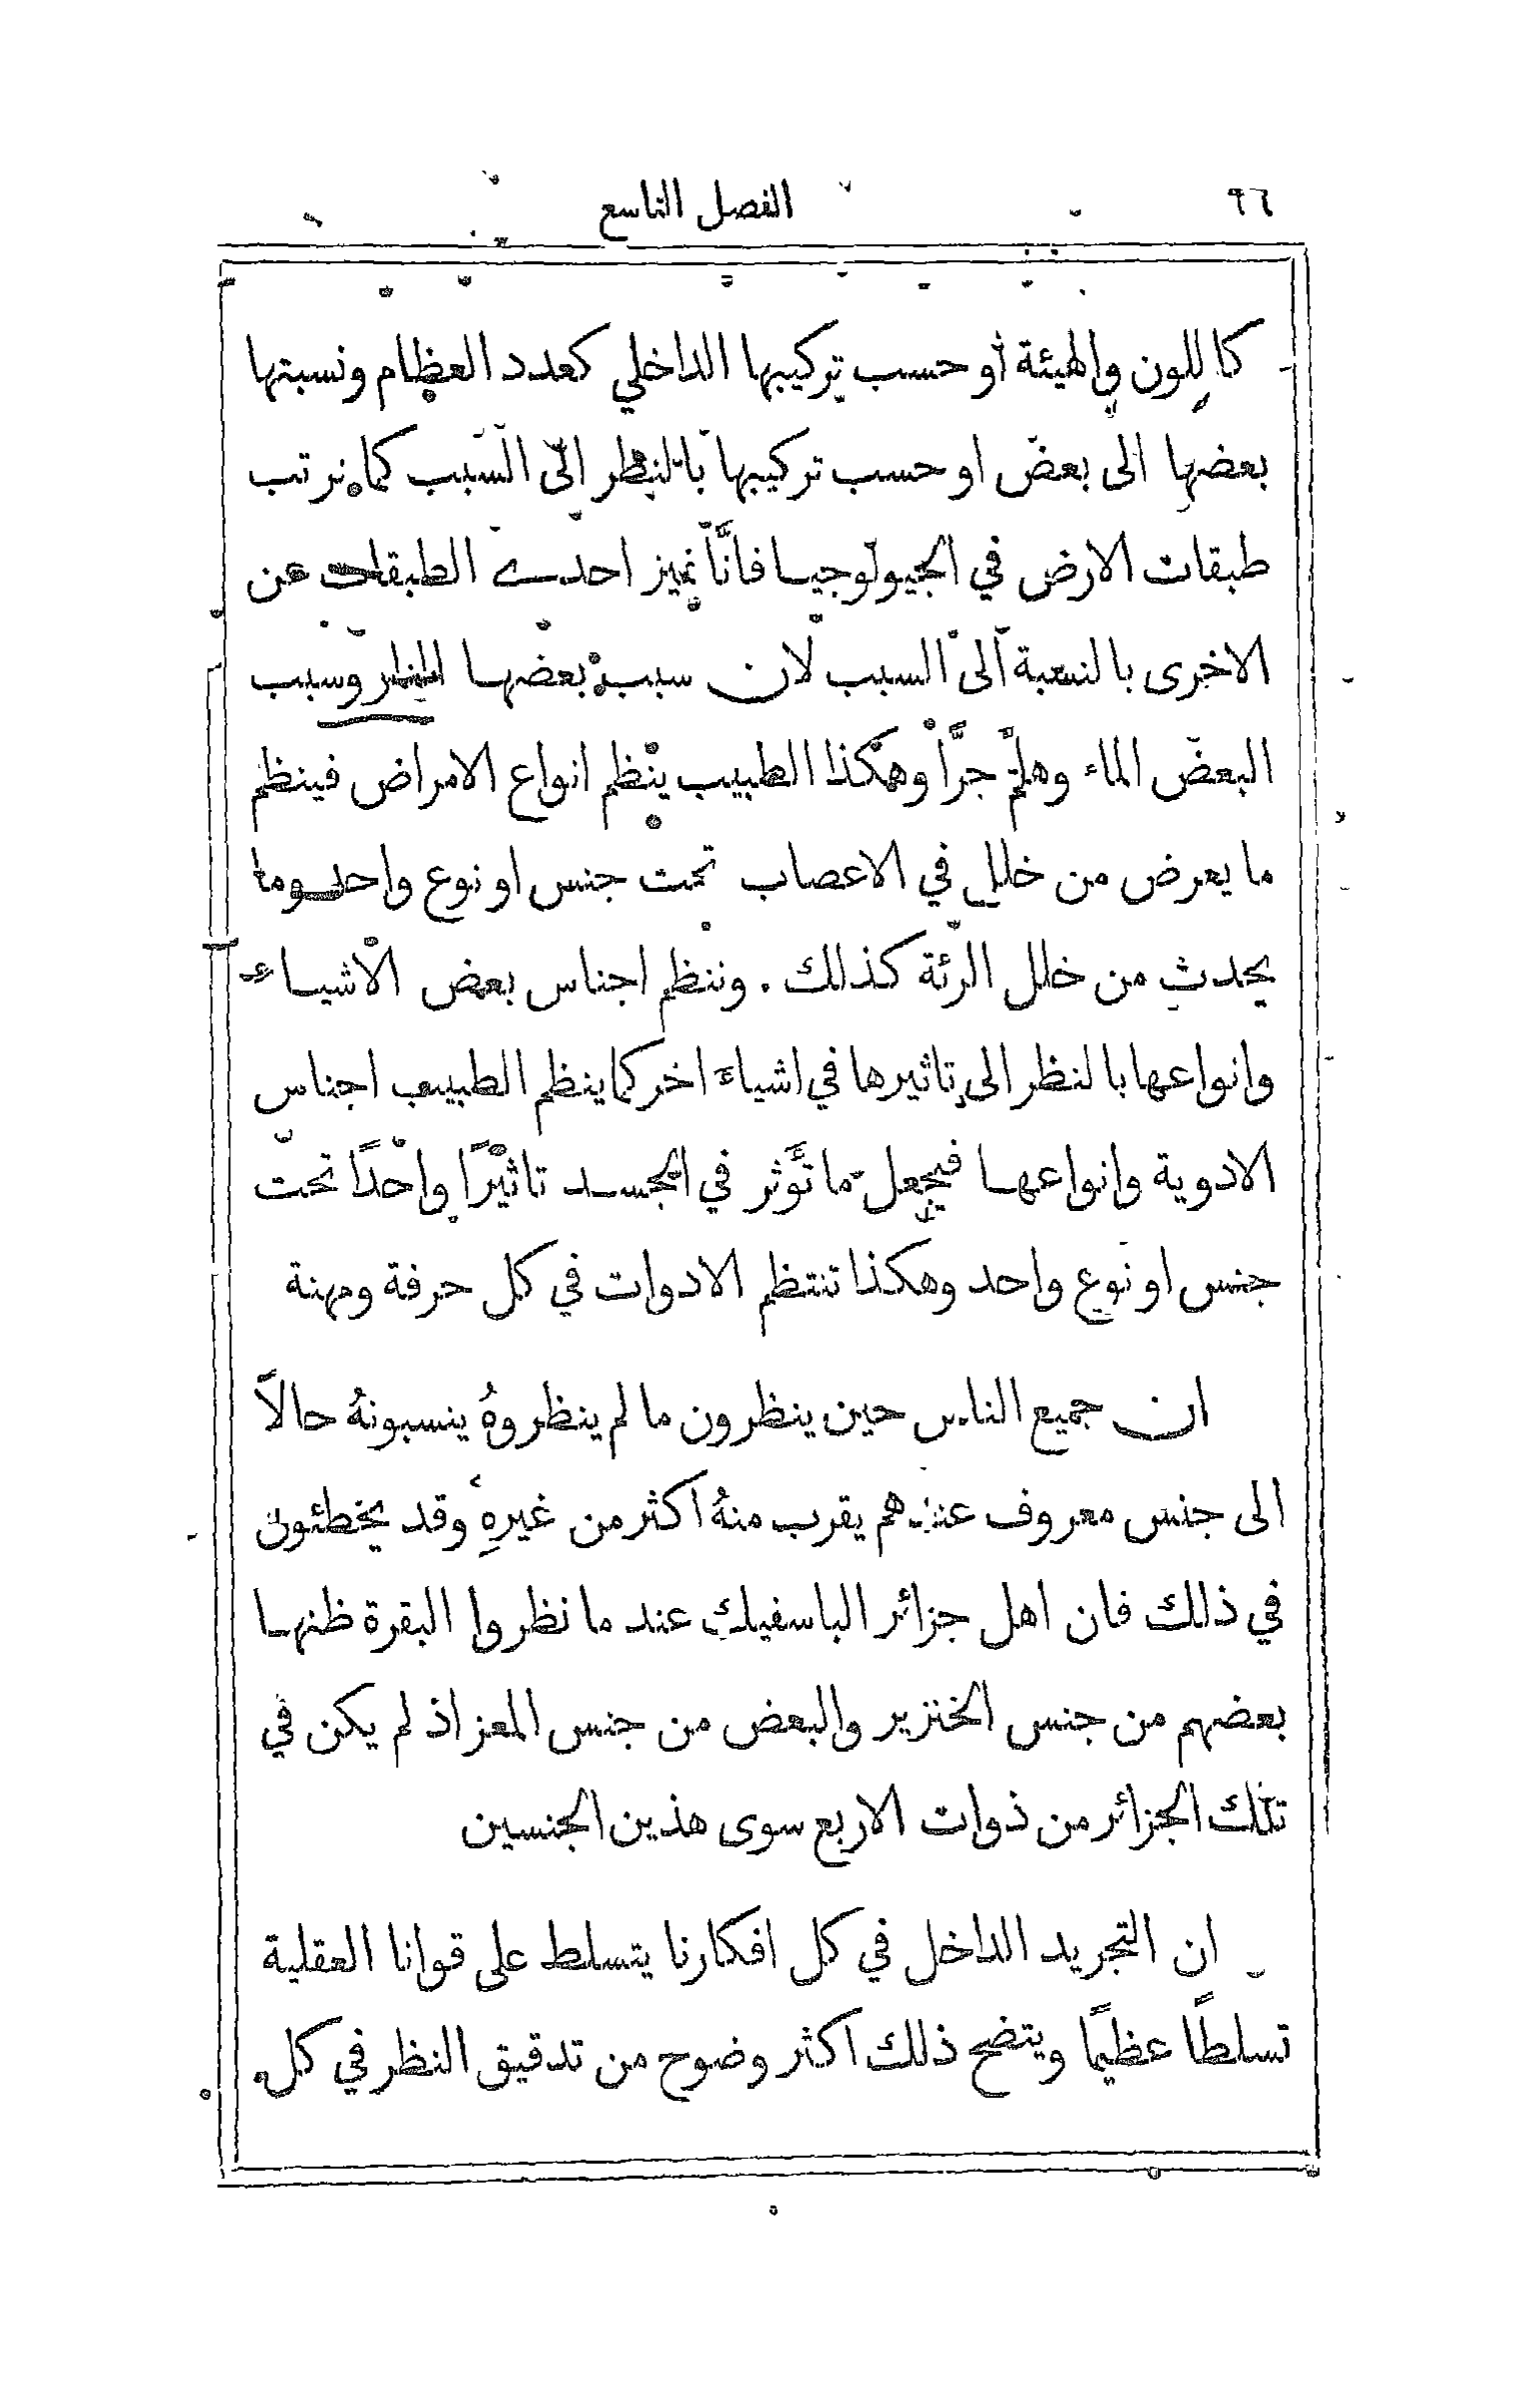 ٩٦
الفصل التاسع
كاللون والهيئة أو حسب تركيبها الداخلي كعدد العظام ونسبتها
بعضها الى بعض او حسب تركيبها بالنظر الى السبب كما نرتب
طبقات الارض في الجيولوجيا فانَّا نميز احدى الطبقات عن
الاخرى بالنسبة الى السبب لان سبب بعضها النار وسبب
البعض الماء وهلمَّ جرَّا وهكذا الطبيب ينظم انواع الامراض فينظم
ما يعرض من خلل في الاعصاب تحت جنس او نوع واحد وما
يحدث من خلل الرئة كذلك . وننظم اجناس بعض الاشياء
وانواعها بالنظر الى تاثيرها في اشياء اخر كما ينظم الطبيب اجناس
الادوية وانواعها فيجعل ما تؤثر في الجسد تاثيرًا واحدًا تحت
جنس او نوع واحد وهكذا تنتظم الادوات في كل حرفة ومهنة
ان جميع الناس حين ينظرون ما لم ينظروهُ ينسبونهُ حالاً
الى جنس معروف عندهم يقرب منهُ اكثر من غيرهِ وقد يخطئون
في ذلك فان اهل جزائر الباسفيك عند ما نظروا البقرة ظنها
بعضهم من جنس الخنزير والبعض من جنس المعز اذ لم يكن في
تلك الجزائر من ذوات الاربع سوى هذين الجنسين
ان التجريد الداخل في كل افكارنا يتسلط على قوانا العقلية
تسلطًا عظيمًا ويتضح ذلك اكثر وضوح من تدقيق النظر في كل